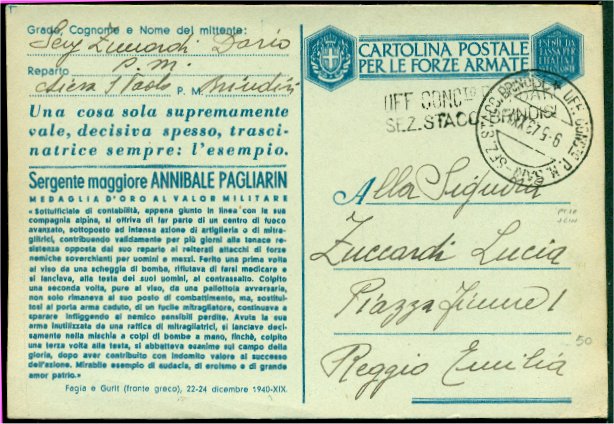 Grado, Cognome e Nome del mittente:
Serg Zuccardi Dario
P. M.
Reparto
S Paolo P. M. Brindisi
Una cosa sola supremamente
vale, decisiva spesso, trasci-
natrice sempre: l'esempio.
Sergente maggiore ANNIBALE PAGLIARIN
MEDAGLIA D'ORO AL VALOR MILITARE
« Sottufficiale di contabilità, appena giunto in linea con la sua
compagnia alpina, si offriva di far parte di un centro di fuoco
avanzato, sottoposto ad intensa azione di artiglieria e di mitra-
gliatrici, contribuendo validamente per più giorni alla tenace re-
sistenza opposta dal suo reparto ai reiterati attacchi di forze
nemiche soverchianti per uomini e mezzi. Ferito una prima volta
al viso da una scheggia di bomba, rifiutava di farsi medicare e
si lanciava, alla testa dei suoi uomini, al contrassalto. Colpito
una seconda volta, pure al viso, da una pallottola avversaria,
non solo rimaneva al suo posto di combattimento, ma, sostitui-
tosi al porta arma caduto, di un fucile mitragliatore, continuava a
sparare infliggendo al nemico sensibili perdite. Avuta la sua
arma inutilizzata da una raffica di mitragliatrici, si lanciava deci-
samente nella mischia a colpi di bombe a mano, finchè, colpito
una terza volta alla testa, si abbatteva esanime sul campo della
gloria, dopo aver contribuito con indomito valore al successo
dell'azione. Mirabile esempio di audacia, di eroismo e di grande
amor patrio. »
Fagia e Gurit (fronte greco), 22-24 dicembre 1940-XIX.
CARTOLINA POSTALE
PER LE FORZE ARMATE
UFF CONC.to
SEZ. STACC. BRINDISI
UFF. CONC.to P. M. SEZ. STACC. BRINDISI
Alla Signora
Zuccardi Lucia
Piazza Fiume 1
Reggio Emilia
50